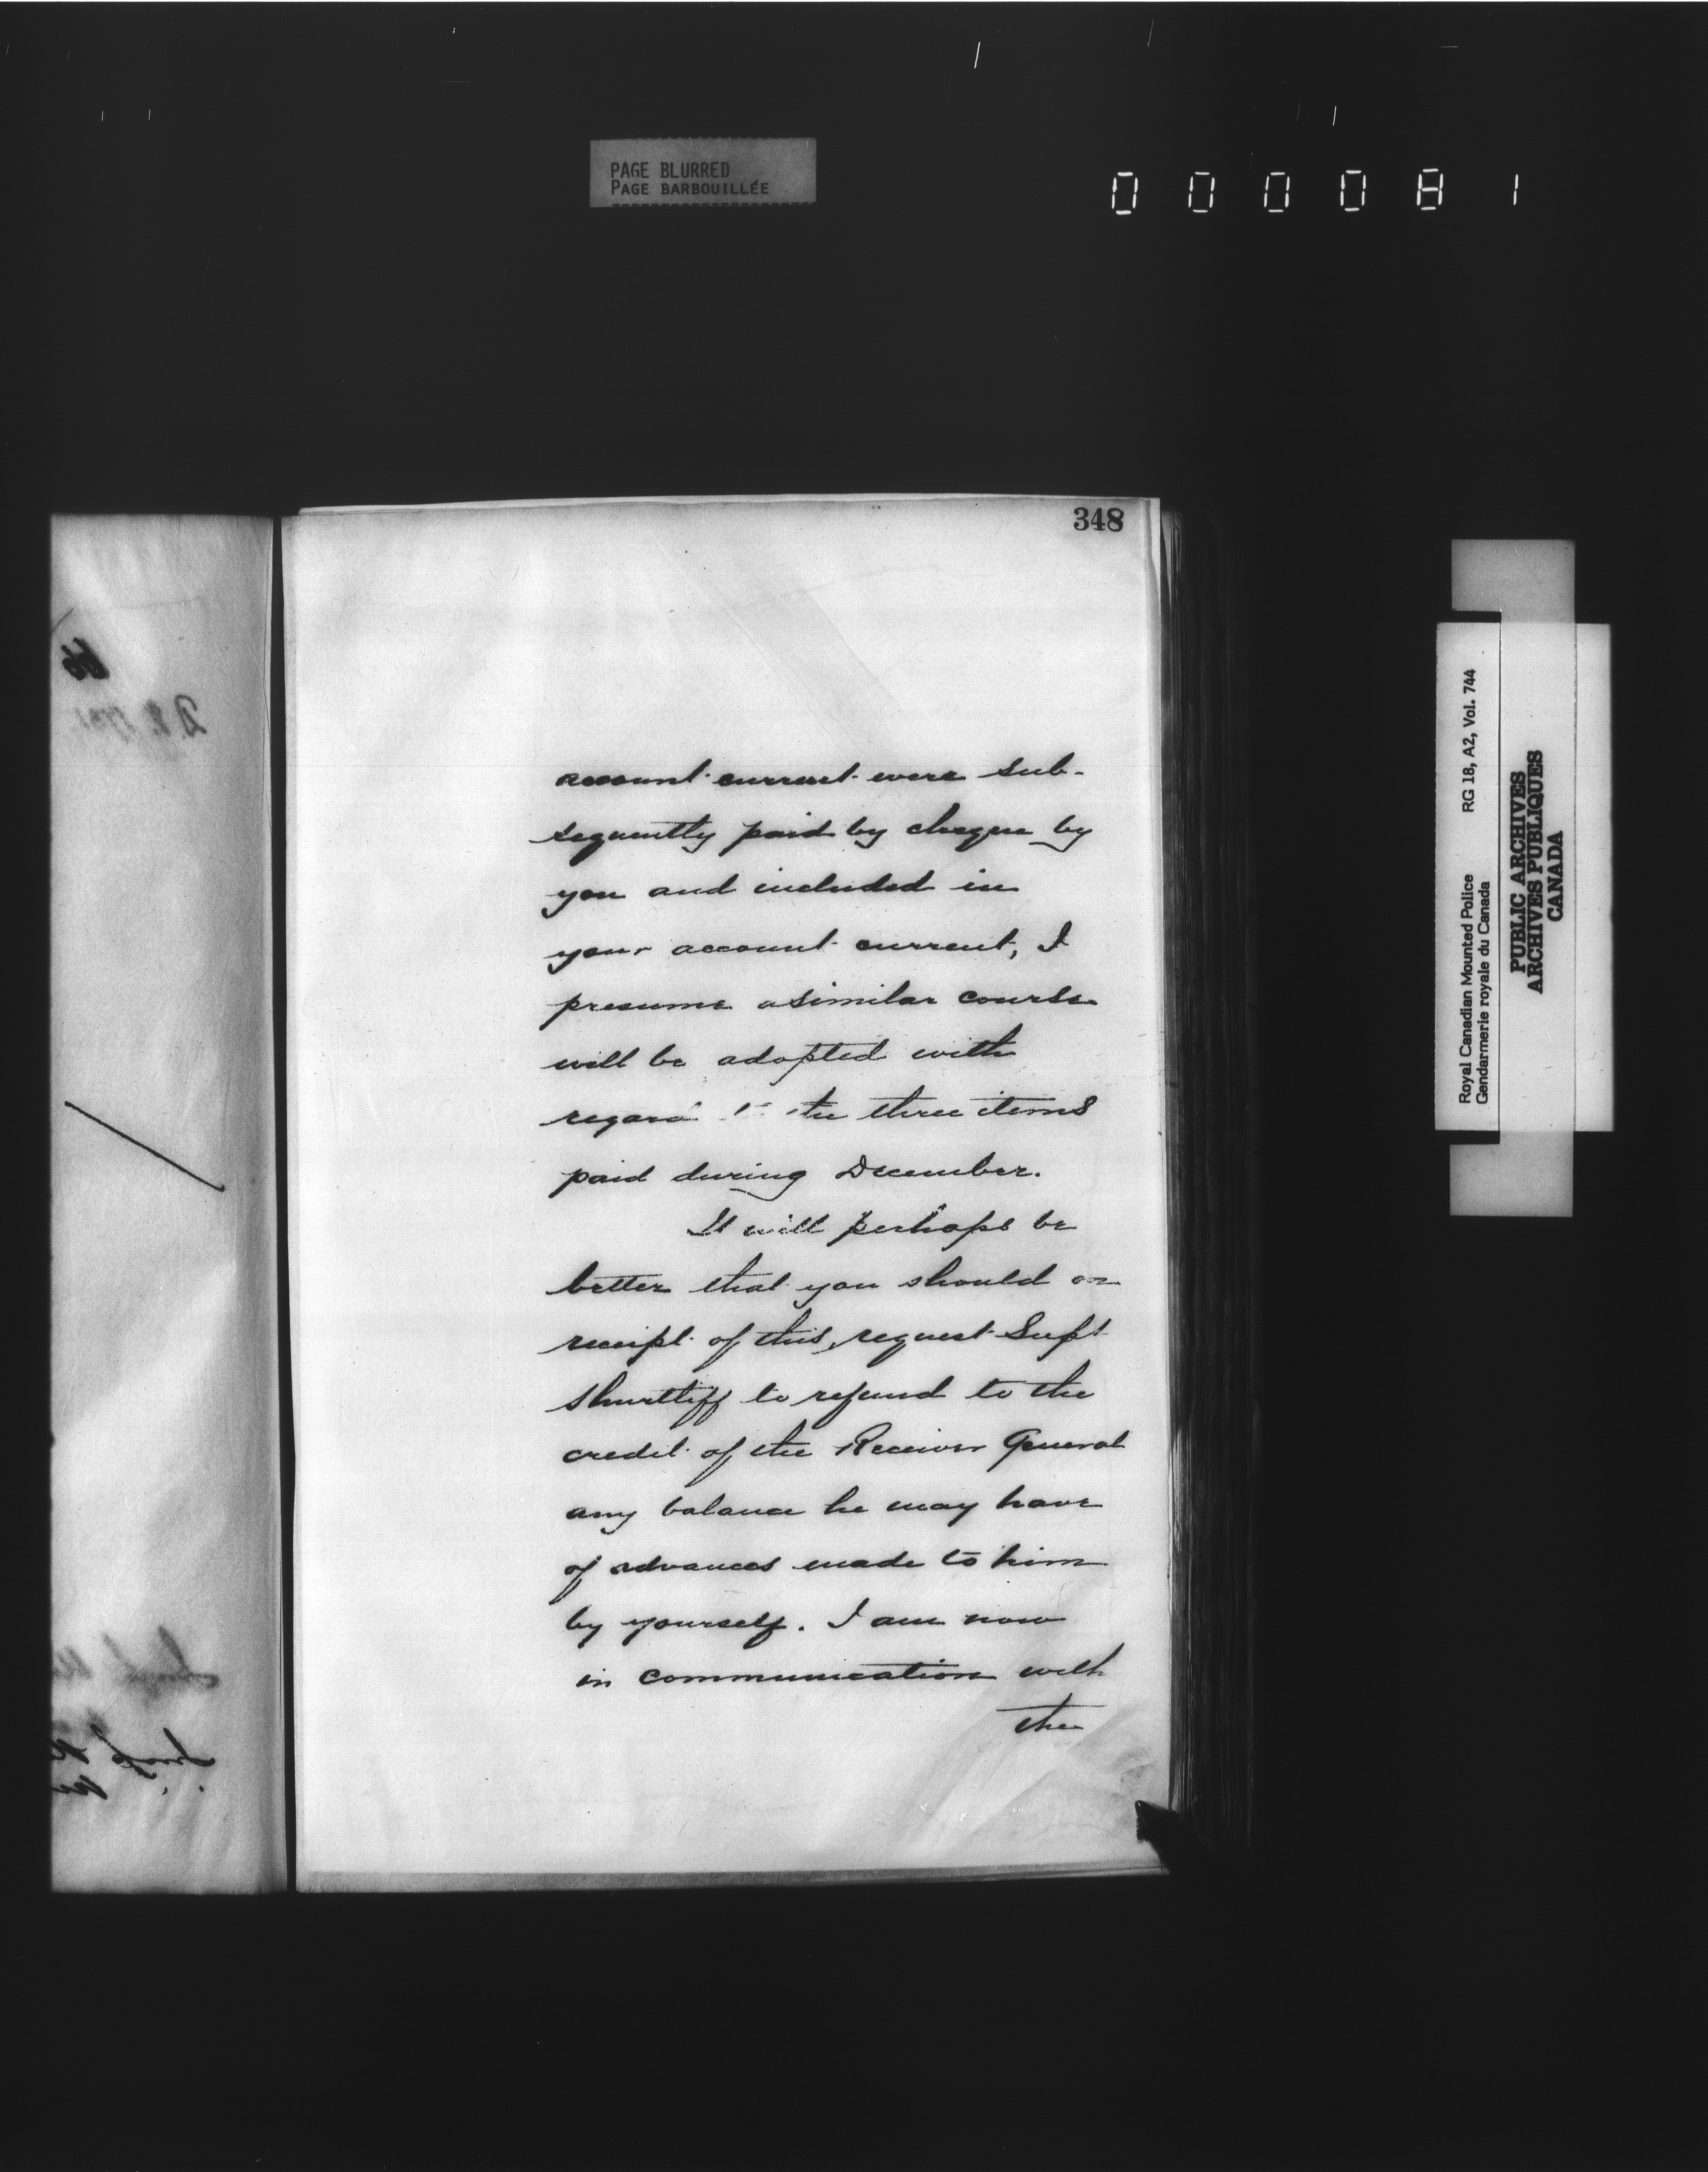 PAGE BLURRED
PAGE BARBOUILLÉE
000081
348
account current were sub-
sequently paid by cheque by
you and included in
your account current, I
presume a similar course
will be adopted with
regard to the three items
paid during December.
It will perhaps be
better that you should on
receipt of this, request Supt
Shurtliff to refund to the
credit of the Receiver General
any balance he may have
of advances made to him
by yourself. I am now
in communication with
the
Royal Canadian Mounted Police RG 18, A2, Vol. 744
Gendarmerie royale du Canada
PUBLIC ARCHIVES
ARCHIVES PUBLIQUES
CANADA